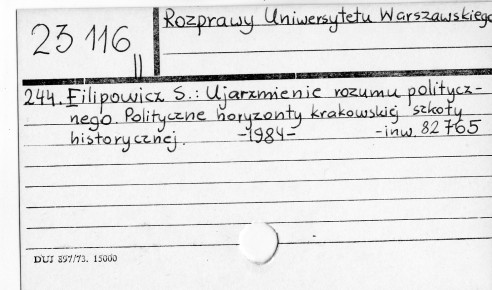 23 116 II
Rozprawy Uniwersytetu Warszawskiego
244. Filipowicz S.: Ujarzmienie rozumu politycz-
nego. Polityczne horyzonty krakowskiej szkoły
historycznej. -1984- -inw. 82765
DUJ 897/73. 15000